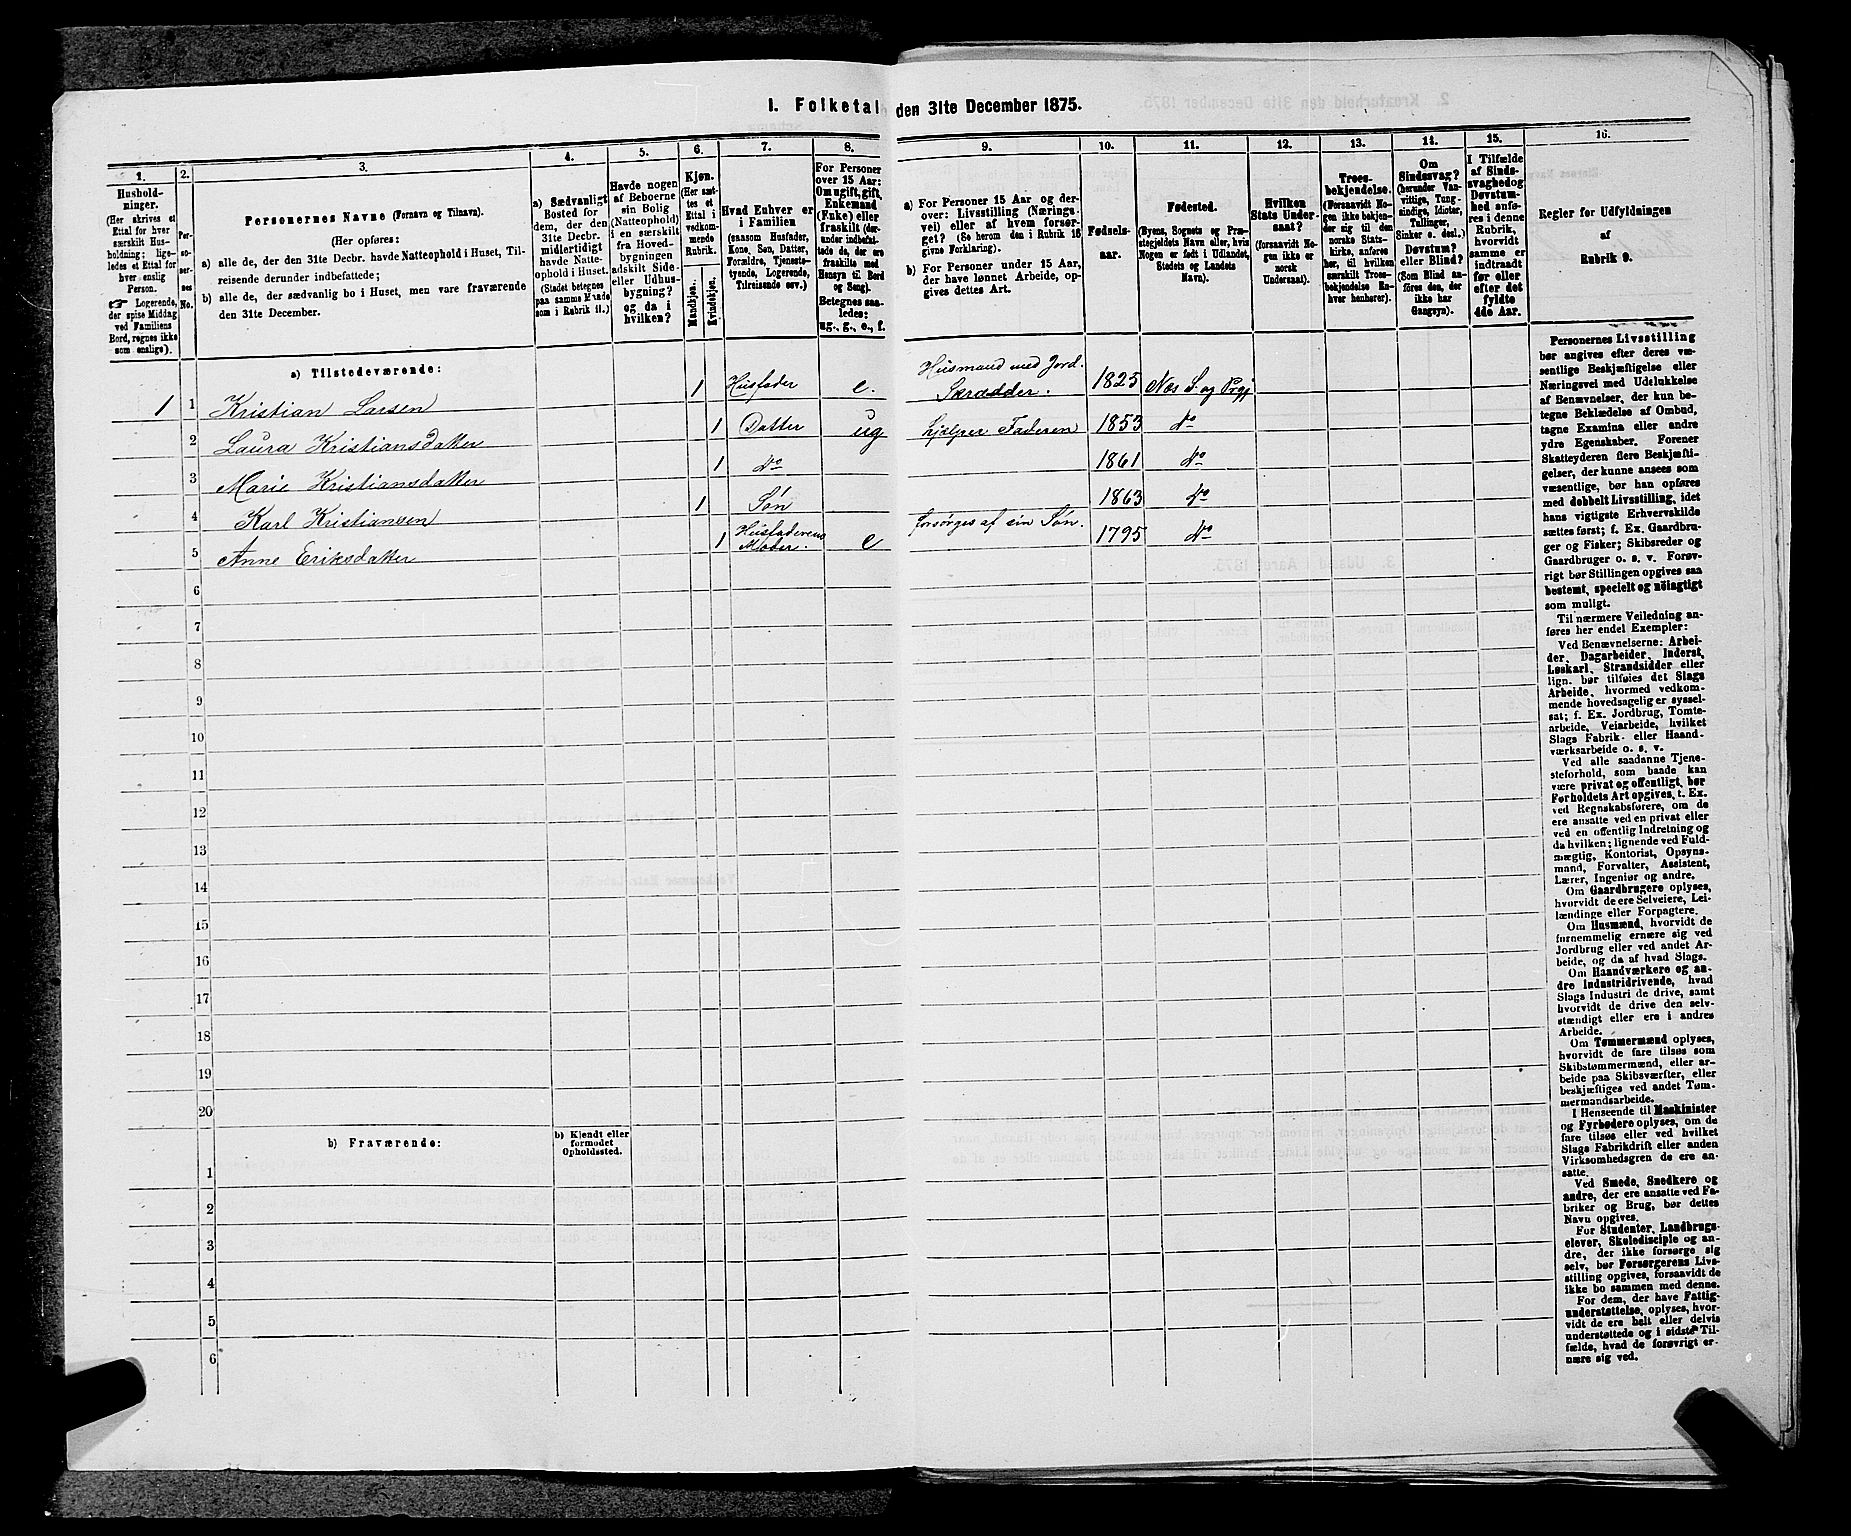 I. Folketal den 31te December 1875.
1.
2.
3.
4.
5.
6.
7.
8.
9.
10.
11.
12.
13.
14.
15.
16.
Hushold-
ninger.
(Her skrives et
Ettal for hver
særskilt Hus-
holdning; lige-
ledes et Ettal for
hver enslig
Person.
☞ Logerende,
der spise Middag
ved Familiens
Bord, regnes ikke
som enslige).
Per-
soner-
nes
No.
Personernes Navne (Fornavn og Tilnavn).
(Her opføres:
a) alle de, der den 31te Decbr. havde Natteophold i Huset, Til-
reisende derunder indbefattede;
b) alle de, der sædvanlig bo i Huset, men vare fraværende
den 31te December.
a) Sædvanligt
Bosted for
dem, der den
31te Decbr.
midlertidigt
havde Natte-
ophold i Huset.
(Stedet betegnes
paa samme Maade
som i Rubrik 11.)
Havde nogen
af Beboerne
sin Bolig
(Natteophold)
i en særskilt
fra Hoved-
bygningen
adskilt Side-
eller Udhus-
bygning?
og da i
hvilken?
Kjøn.
(Her sæt-
tes et
Ettal i
vedkom-
mende
Rubrik.
Mandkjøn.
Kvindekjøn.
Hvad Enhver er
i Familien
(saasom Husfader,
Kone, Søn, Datter,
Forældre, Tjeneste-
tyende, Logerende,
Tilreisende osv.)
For Personer
over 15 Aar:
Om ugift, gift,
Enkemand
(Enke) eller
fraskilt (der-
under indbefat-
tede de, der ere
fraskilte med
Hensyn til Bord
og Seng).
Betegnes saa-
ledes:
ug., g., e., f.
a) For Personer 15 Aar og der-
over: Livsstilling (Nærings-
vei) eller af hvem forsør-
get? (Se herom den i Rubrik 16
givne Forklaring).
b) For Personer under 15 Aar,
der have lønnet Arbeide, op-
gives dettes Art.
Fødsels-
aar.
Fødested.
(Byens, Sognets og Præ-
stegjeldets Navn eller, hvis
Nogen er født i Udlandet,
Stedets og Landets
Navn).
Hvilken
Stats Under-
saat?
(forsaavidt No-
gen ikke er
norsk
Undersaat).
Troes-
bekjendelse.
(Forsaavidt No-
gen ikke bekjen-
der sig til den
norske Stats-
kirke, anføres
her, til hvilken
særskilt Troes-
bekjendelse En-
hver henhører).
Om
Sindssvag?
(herunder Van-
vittige, Tung-
sindige, Idioter,
Tullinger,
Sinker o. desl.)
Døvstum?
eller Blind?
(Som Blind an-
føres den, der
ikke har
Gangsyn).
I Tilfælde
af Sinds-
svaghed og
Døvstum-
hed anfø-
res i denne
Rubrik,
hvorvidt
samme er
indtraadt
før eller
efter det
fyldte
4de Aar.
Regler for Udfyldningen
af
Rubrik 9.
a) Tilstedeværende:
1 1 Kristian Larsen 1 Husfader e. Husmand med Jord. Skrædder. 1825 Næs S. og Prgj
2 Laura Kristiansdatter 1 Datter ug hjælper Faderen 1853 do
3 Marie Kristiansdatter 1 do 1861 do
4 Karl Kristiansen 1 Søn 1863 do
5 Anne Eriksdatter 1 Husfaderens Moder. e forsørges af sin Søn. 1795 do
6
7
8
9
10
11
12
13
14
15
16
17
18
19
20
b) Fraværende:
b) Kjendt eller
formodet
Opholdssted.
1
2
3
4
5
6
Personernes Livsstilling
bør angives efter deres væ-
sentlige Beskjæftigelse eller
Næringsvei med Udelukkelse
af Benævnelser, der kun be-
tegne Beklædelse af Ombud,
tagne Examina eller andre
ydre Egenskaber. Forener
Skatteyderen flere Beskjæfti-
gelser, der kunne ansees som
væsentlige, bør han opføres
med dobbelt Livsstilling, idet
hans vigtigste Erhvervskilde
sættes først; f. Ex. Gaardbru-
ger og Fisker; Skibsreder og
Gaardbruger o. s. v. Forøv-
rigt bør Stillingen opgives saa
bestemt, specielt og nøiagtigt
som muligt.
Til nærmere Veiledning an-
føres her endel Exempler:
Ved Benævnelserne: Arbei-
der, Dagarbeider, Inderst,
Løskarl, Strandsidder eller
lign. bør tilføies det Slags
Arbeide, hvormed vedkom-
mende hovedsagelig er syssel-
sat; f. Ex. Jordbrug, Tomte-
arbeide, Veiarbeide, hvilket
Slags Fabrik- eller Haand-
værksarbeide o. s. v.
Ved alle saadanne Tjene-
steforhold, som baade kan
være privat og offentligt, bør
Forholdets Art opgives, t. Ex.
ved Regnskabsførere, om de
ere ansatte ved en privat eller
ved en offentlig Indretning og
da hvilken; lignende ved Fuld-
mægtig, Kontorist, Opsyns-
mand, Forvalter, Assistent,
Lærer, Ingeniør og andre.
Om Gaardbrugere oplyses,
hvorvidt de ere Selveiere, Lei-
lændinge eller Forpagtere.
Om Husmænd, hvorvidt de
fornemmelig ernære sig ved
Jordbrug eller ved andet Ar-
beide, og da af hvad Slags.
Om Haandværkere og an-
dre Industridrivende, hvad
Slags Industri de drive, samt
hvorvidt de drive den selv-
stændigt eller ere i andres
Arbeide.
Om Tømmermænd oplyses,
hvorvidt de fare tilsøs som
Skibstømmermænd, eller ar-
beide paa Skibsværfter, eller
beskjæftiges ved andet Tøm-
mermandsarbeide.
I Henseende til Maskinister
og Fyrbødere oplyses, om de
fare tilsøs eller ved hvilket
Slags Fabrikdrift eller anden
Virksomhedsgren de ere an-
satte.
Ved Smede, Snedkere og
andre, der ere ansatte ved Fa-
briker og Brug, bør dettes
Navn opgives.
For Studenter, Landbrugs-
elever, Skoledisciple og an-
dre, der ikke forsørge sig
selv, bør Forsørgerens Livs-
stilling opgives, forsaavidt de
ikke bo sammen med denne.
For dem, der have Fattig-
understøttelse, oplyses, hvor-
vidt de ere helt eller delvis
understøttede og i sidste Til-
fælde, hvad de forøvrigt er-
nære sig ved.